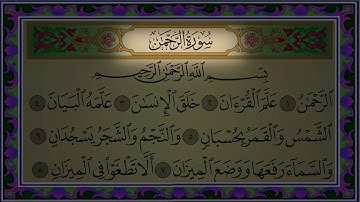 سُورَةُ الرَّحْمٰن
بِسْمِ ٱللَّهِ ٱلرَّحْمَٰنِ ٱلرَّحِيمِ
ٱلرَّحْمَٰنُ ١ عَلَّمَ ٱلْقُرْءَانَ ٢ خَلَقَ ٱلْإِنسَٰنَ ٣ عَلَّمَهُ ٱلْبَيَانَ ٤
ٱلشَّمْسُ وَٱلْقَمَرُ بِحُسْبَانٍ ٥ وَٱلنَّجْمُ وَٱلشَّجَرُ يَسْجُدَانِ ٦
وَٱلسَّمَآءَ رَفَعَهَا وَوَضَعَ ٱلْمِيزَانَ ٧ أَلَّا تَطْغَوْا۟ فِى ٱلْمِيزَانِ ٨